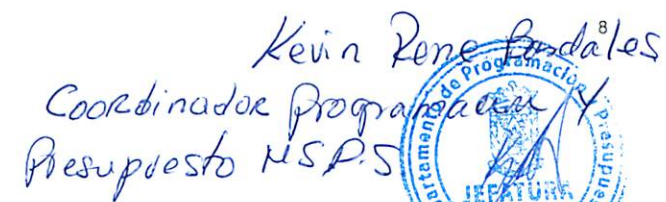 8
Kevin Rene Bardales
Coordinador Programacion Y
Presupuesto MSP.S
Departamento de Programación y Presupuesto
JEFATURA